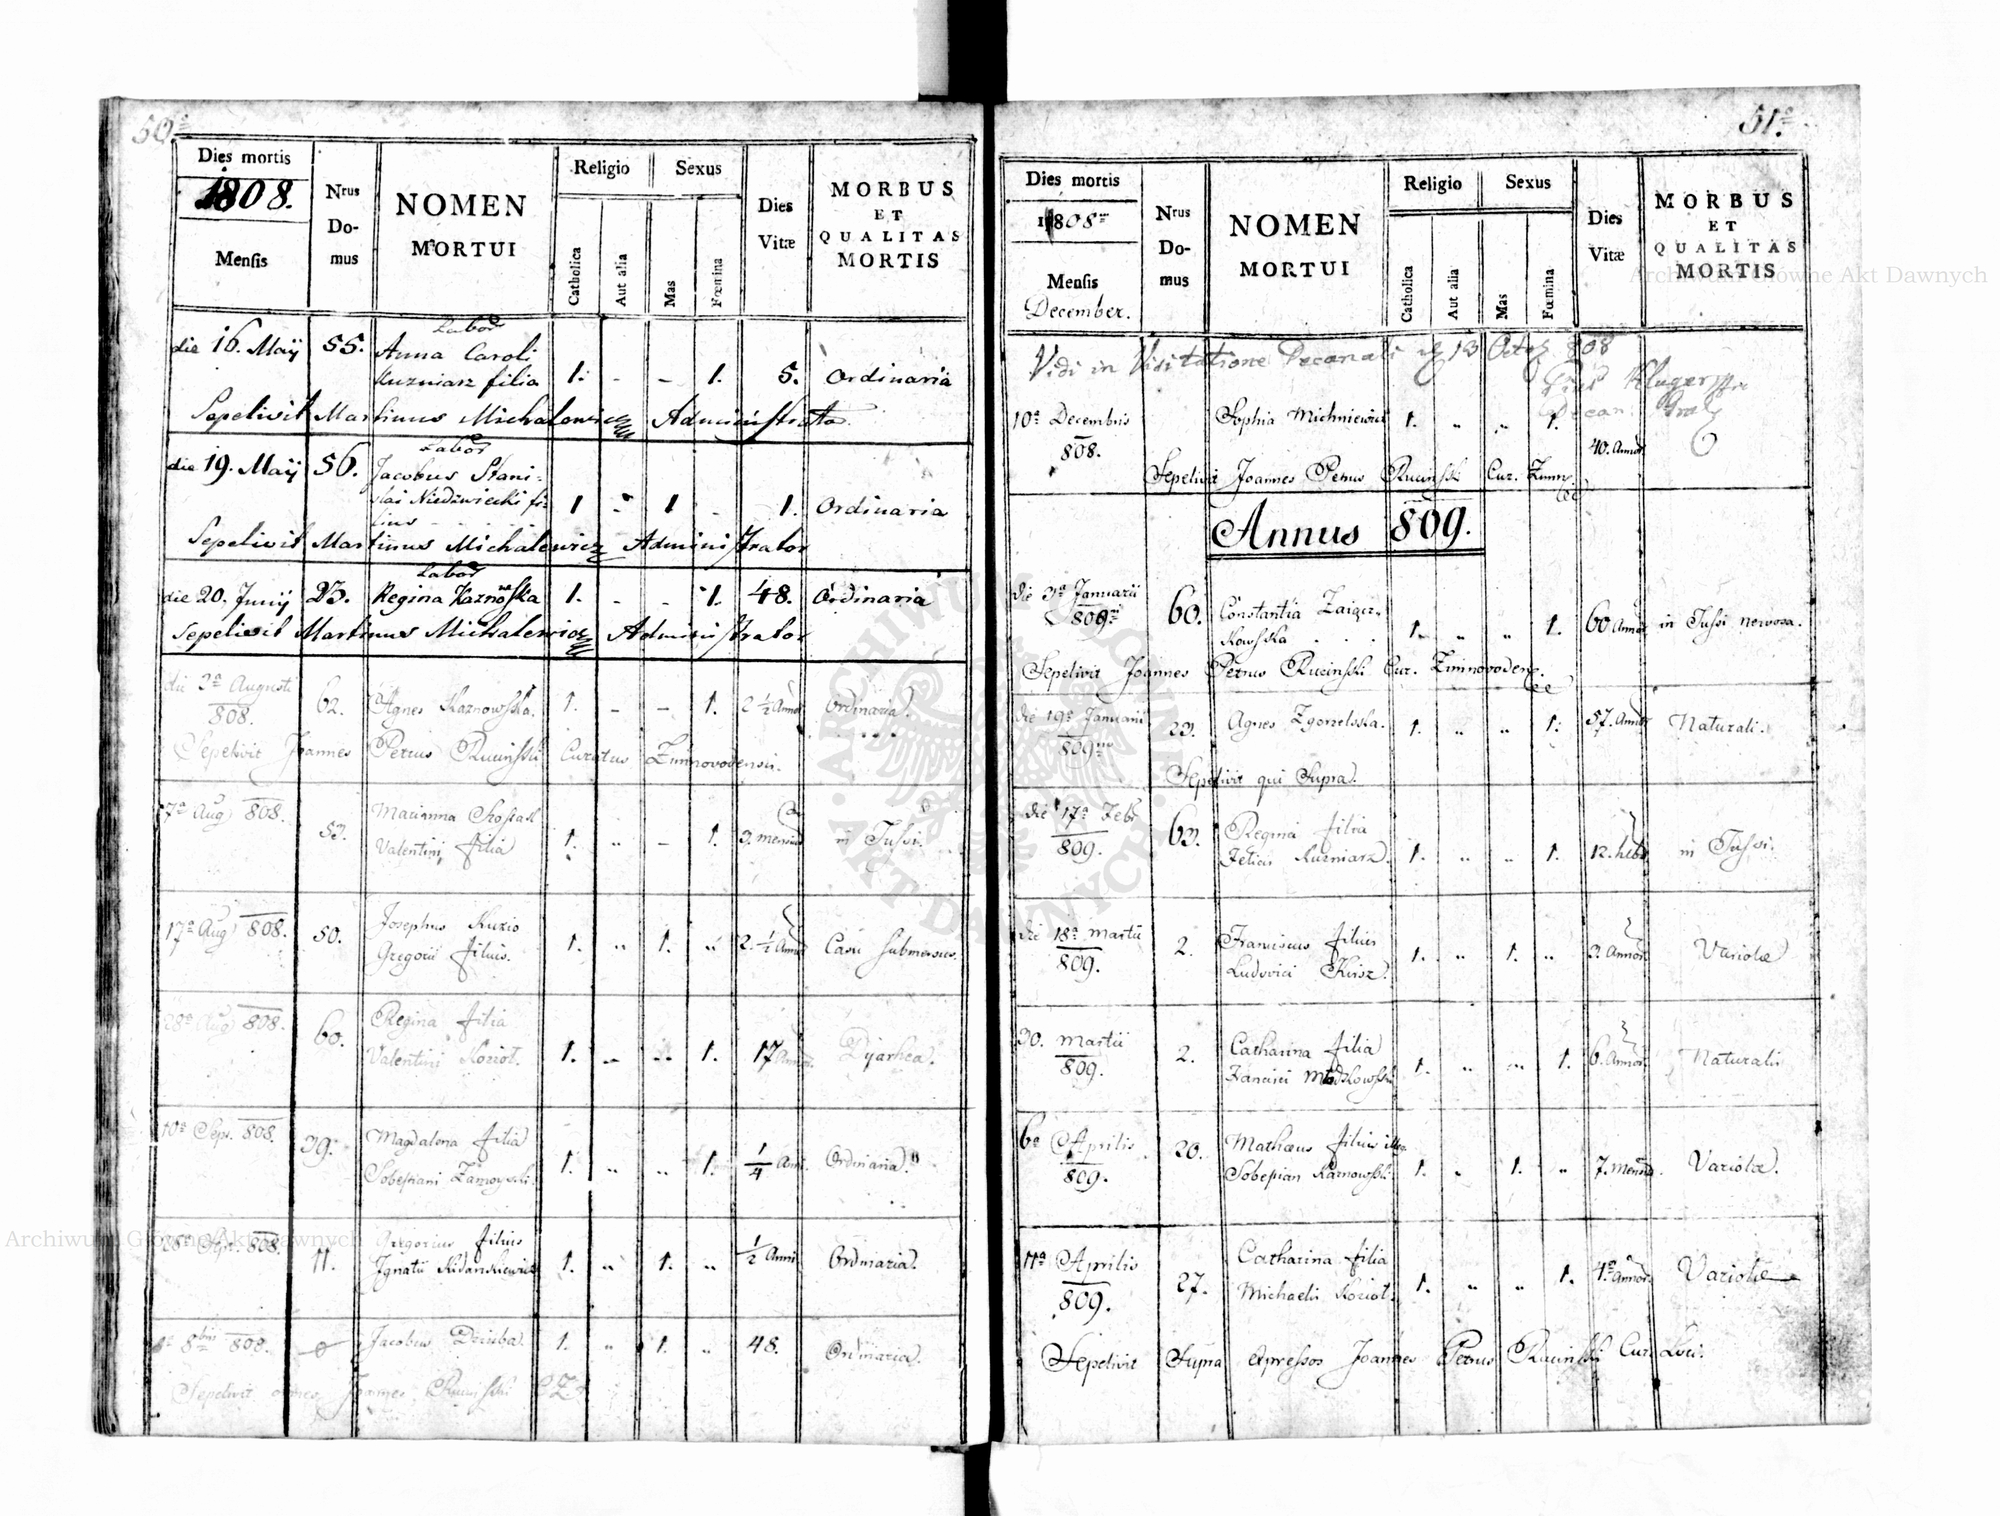 50.
Dies mortis
1808.
Mensis
Nrus
Do-
mus
NOMEN
MORTUI
Religio
Catholica
Aut alia
Sexus
Mas
Fœmina
Dies
Vitæ
MORBUS
ET
QUALITAS
MORTIS
Labor
die 16. Maij 55. Anna Caroli
Kuzniarz filia 1. - - 1. 5. Ordinaria
Sepelivit Martinus Michalewicz Administrator
Labor
die 19. Maij 56. Jacobus Stani-
slai Niedzwiecki fi- 1 - 1 - 1. Ordinaria
lius
Sepelivit Martinus Michalewicz Administrator
Labor
die 20. Junij 23. Regina Kaznowska 1. - - 1. 48. Ordinaria
Sepelivit Martinus Michalewicz Administrator
die 2a Augusti
808. 62. Agnes Kaznowska. 1. - - 1. 2 1/2 Anno Ordinaria.
Sepelivit Joannes Petrus Rucinski Curatus Zimnovodensis.
7a Aug 808. 53. Marianna
Valentini filia 1. " - 1. 3. mensium in Tussi.
17a Aug 808. 50. Josephus Kuzio
Gregorii filius. 1. " 1. " 2. 1/2 Anno Casu submersus.
28a Aug 808. 60. Regina filia
Valentini Koziot. 1. " " 1. 17 Annor. Dyarhea.
10a Sept. 808. 39. Magdalena filia
Sobestiani Zamoyski. 1. " " 1. 1/4 Ani. Ordinaria.
28a Sept. 808. 11. Gregorius filius
Ignatii 1. " 1. " 1/2 Anni Ordinaria.
8bris 808. 0 Jacobus Dziuba. 1. " 1. " 48. Ordinaria.
Sepelivit omnes Joannes Rucinski
51.
Dies mortis
1808
Mensis
December.
Nrus
Do-
mus
NOMEN
MORTUI
Religio
Catholica
Aut alia
Sexus
Mas
Fœmina
Dies
Vitæ
MORBUS
ET
QUALITAS
MORTIS
Vidi in Visitatione Decanali 13 Octob 808
10a Decembris
808. Sophia Michniewicz 1. " " 1. 40. Annor
Sepelivit Joannes Petrus Rucinski Cur. Zimn.
Annus 809.
die 3a Januarii
809 60. Constantia Zaiącz-
kowska 1. " " 1. 60 Annor in Tussi nervosa.
Sepelivit Joannes Petrus Rucinski Cur. Zimnovodens.
die 19a Januarii
809 23. Agnes Zgorzelska. 1. " " 1. 57. Annor Naturali.
Sepelivit qui Supra.
die 17a Febr
809. 63. Regina filia
Felicis Kuzniarz. 1. " " 1. 12. hebd in Tussi.
die 18a Martii
809. 2. Franciscus filius
Ludovici Kirsz. 1. " 1. " 3. Annor. Variolæ
30. Martii
809. 2. Catharina filia
1. " " 1. 6. Annor. Naturali
6a Aprilis
809. 20. Mathæus filius illeg.
Sobestian Kaznowski. 1. " 1. " 7. Mensium. Variolæ.
11a Aprilis
809. 27. Catharina filia
Michaelis Koziot. 1. " " 1. 4. Annor. Variolæ
Sepelivit Supra expressos Joannes Petrus Rucinski Cur. Loci.
Archiwum Główne Akt Dawnych
Archiwum Główne Akt Dawnych
ARCHIWUM GŁÓWNE
AKT DAWNYCH